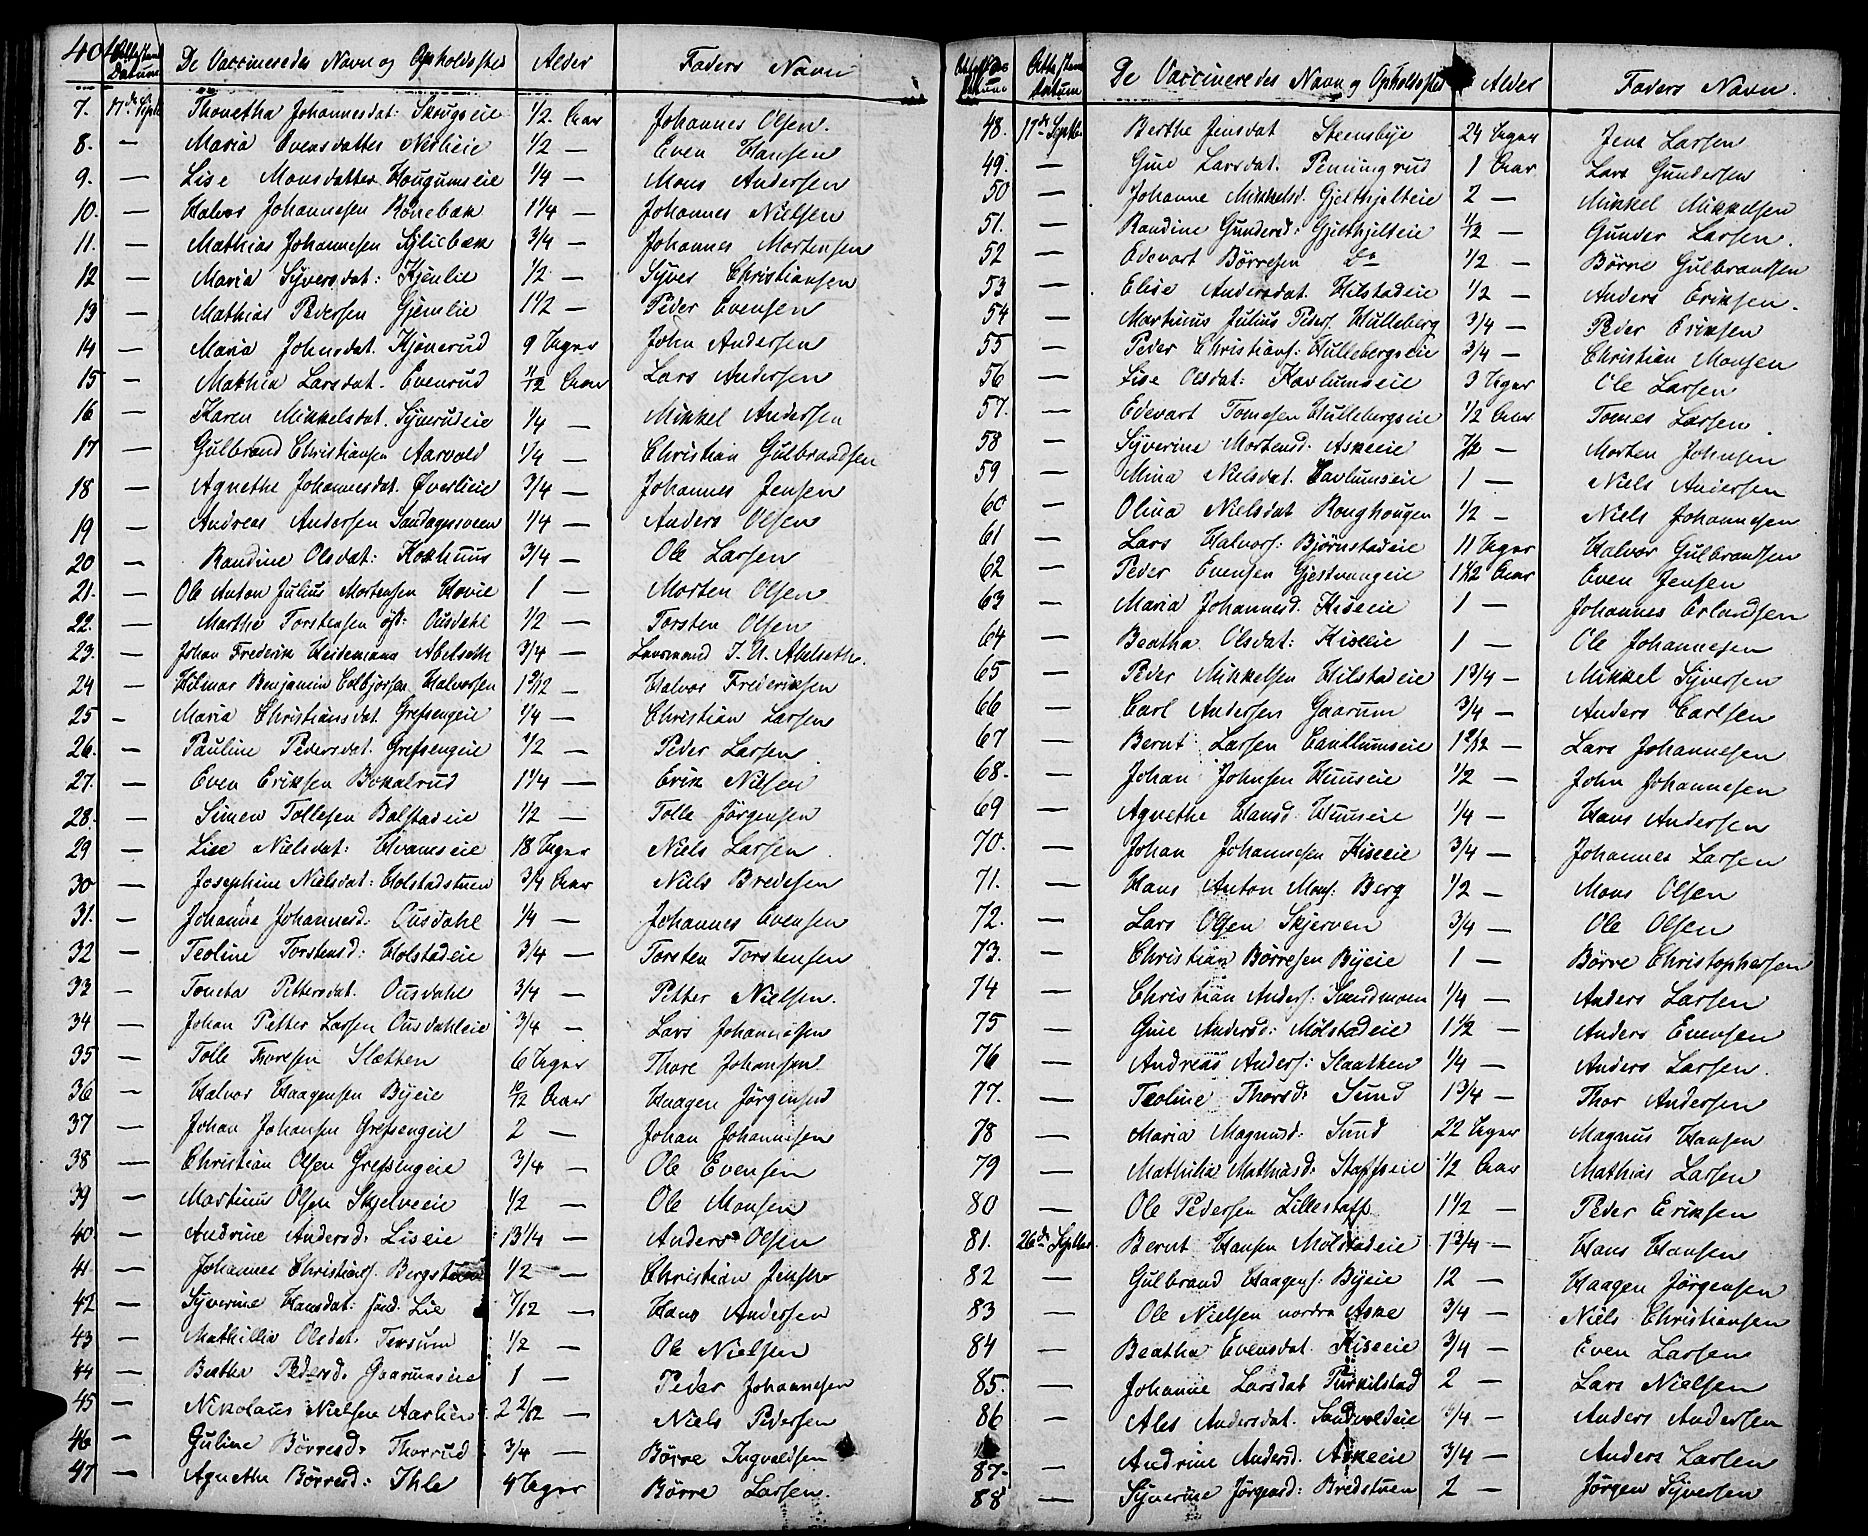 40
Datum De Vaccineredes Navn og Opholdssted Alder Faders Navn
7. 17de Septb Thonetha Johannesdat: Skougseie 1/2 Aar Johannes Olsen.
8. — Maria Evensdatter Nedlieie 1/2 — Even Hansen
9. — Lise Monsdatter Hougumseie 1/4 — Mons Andersen
10. — Halvor Johannesen Bönebæk 1 1/4 — Johannes Nielsen
11. — Mathias Johannesen Syliebæk 3/4 — Johannes Mortensen
12 — Maria Syversdat: Kjenlie 1/2 — Syver Christiansen
13 — Mathias Pedersen Gjemlie 1 1/2 — Peder Evensen
14 — Maria Johnsdat. Kjönerud 9 Uger John Andersen
15 — Mathea Larsdat. Evenrud 11/12 Aar Lars Andersen
16 — Karen Mikkelsdat. Syverudeie 1/4 — Mikkel Andersen
17 — Gulbrand Christiansen Aarvold 1/4 — Christian Gulbrandsen
18 — Agnethe Johannesdat. Överlieie 3/4 — Johannes Jensen
19 — Andreas Andersen Sandagersveen 1/4 — Anders Olsen
20 — Randine Olsdat: Kokhuus 3/4 — Ole Larsen
21. — Ole Anton Julius Mortensen Hovie 1 — Morten Olsen
22. — Marthe Torstensen öst: Ousdahl 1/2 — Torsten Olsen
23. — Johan Frederik Heidemann Abelseth 3/4 — Lensmand I. U. Abelseth.
24 — Hilmar Benjamin Colbjörsen Halvorsen 1 3/12 — Halvor Frederiksen
25 — Maria Christiansdat. Grefsengeie 1/4 — Christian Larsen
26. — Pauline Pedersdat. Grefsengeie 1/2 — Peder Larsen
27. — Even Eriksen Bokalrud 1 1/4 — Erik Nilsen
28. — Simen Tollesen Balstadeie 1/2 — Tolle Jörgensen
29 — Lise Nielsdat: Hvamseie 18 Uger Niels Larsen
30 — Josephine Nielsdat: Holstadstuen 3/4 Aar Niels Bredesen
31. — Johanna Johannesd. Ousdahl 1/4 — Johannes Evensen
32 — Teoline Torstensd: Holstadeie 3/4 — Torsten Torstensen
33 — Toneta Pettersdat. Ousdahl 3/4 — Petter Nielsen.
34 — Johan Petter Larsen Ousdahleie 3/4 — Lars Johannesen
35 — Tolle Thoresen Slætten 6 Uger Thore Johansen
36 — Halvor Haagensen Byeie 10/12 Aar Haagen Jörgensen
37 — Johan Johansen Grefsengeie 2 — Johan Johannesen
38 — Christian Olsen Grefsengeie 3/4 — Ole Evensen
39 — Martinus Olsen Skjelveeie 1/2 — Ole Monsen
40. — Andrine Andersd. Liseie 13 1/4 — Anders Olsen
41 — Johannes Christians. Bergstuen 1/2 — Christian Jensen
42 — Syverine Hansdat: sönd. Lie 7/12 — Hans Andersen
43 — Mathillia Olsdat. Tersum 1/2 — Ole Nielsen
44 — Bertha Pedersd. Gaarumseie 1 — Peder Johannesen
45 — Nikolaus Nielsen 2 2/12 — Niels Pedersen
46 — Guline Börresd. Thorrud 3/4 — Börre Ingvaldsen
47 — Agnethe Börresd: Ihle 4 Uger Börre Larsen.
Datum De Vaccineredes Navn og Opholdssted Alder Faders Navn.
48. 17de Septb. Berthe Jensdat Steensbye 24 Uger Jens Larsen
49. — Gine Larsdat. Penningrud 1 Aar Lars Gundersen
50 — Johanne Mikkelsd. Gjelthjelteie 2 — Mikkel Mikkelsen
51. — Randine Gundersd: Gjelthjelteie 1/2 — Gunder Larsen.
52 — Edevart Börresen Do 1/2 — Börre Gulbrandsen
53 — Elise Andersdat. Hilstadeie 1/2 — Anders Eriksen.
54 — Martinus Julius Peders. Hulleberg 3/4 — Peder Eriksen
55 — Peder Christians: Hullebergseie 3/4 — Christian Monsen
56 — Lise Olsdat: Kavlumseie 3 Uger Ole Larsen
57. — Edevart Tomesen Hullebergseie 1/2 Aar Tomes Larsen.
58 — Syverine Mortensd. Askeeie 7/12 — Morten Johnsen
59 — Mina Nielsdat. Cavlumseie 1 — Niels Andersen
60 — Olina Nielsdat Roughougen 1/2 — Niels Johannesen
61 — Lars Halvors: Björnstadeie 11 Uger Halvor Gulbrandsen
62 — Peder Evensen Gjestvangeie 1 1/2 Aar Even Jensen
63 — Maria Johannesd. Kiseeie 1 — Johannes Erlandsen
64 — Beatha Olsdat: Kiseeie 1 — Ole Johannesen
65 — Peder Mikkelsen Hilstadeie 1 3/4 — Mikkel Syversen
66 — Carl Andersen Gaarum 3/4 — Anders Carlsen
67 — Bernt Larsen Cautlumseie 1 2/12 — Lars Johannesen
68. — Johan Johnsen Huuseie 1/2 — John Johannesen
69 — Agnethe Hansd. Huuseie 1/4 — Hans Andersen
70. — Johan Johannesen Kiseeie 3/4 — Johannes Larsen
71. — Hans Anton Mons: Berg 1/2 — Mons Olsen
72. — Lars Olsen Skjerven 3/4 — Ole Olsen
73. — Christian Börresen Byeie 1 — Börre Christophersen
74 — Christian Anders: Sandmoen 1/4 — Anders Larsen
75 — Gine Andersd: Mölstadeie 1 1/2 — Anders Evensen
76 — Andreas Anders: Slaatten 1/4 — Anders Larsen.
77. — Teoline Thorsd. Sund 1 3/4 — Thor Andersen
78 — Maria Magnusd: Sund 22 Uger Magnus Hansen
79 — Mathilia Mathiasd. Staffseie 1/2 Aar Mathias Larsen
80 — Ole Pedersen Lillestaff 1 1/2 — Peder Eriksen
81. 26de Septbr. Bernt Hansen Mölstadeie 1 3/4 — Hans Hansen
82 — Gulbrand Haagens: Byeie 12 — Haagen Jörgensen
83 — Ole Nielsen nordre Aske 3/4 — Niels Christiansen
84 — Beatha Evensdat. Kiseeie 3/4 — Even Larsen
85. — Johanne Larsdat Turkilstad 2 — Lars Nielsen
86 — Ales Andersdat. Sandvoldeie 1/4 — Anders Andersen
87. — Andrine Andersd. Askeeie 3/4 — Anders Larsen
88 — Syverine Jörgensd: Bredstuen 2 — Jörgen Syversen